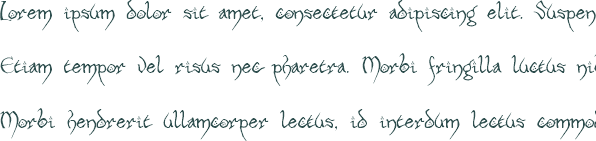 Lorem ipsum dolor sit amet, consectetur adipiscing elit. Suspen
Etiam tempor vel risus nec pharetra. Morbi fringilla luctus ni
Morbi hendrerit ullamcorper lectus, id interdum lectus commo